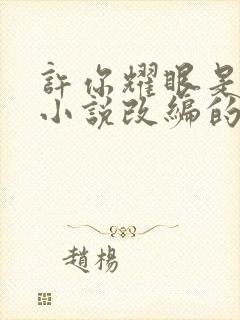 許你耀眼是
小說改編的
趙楊